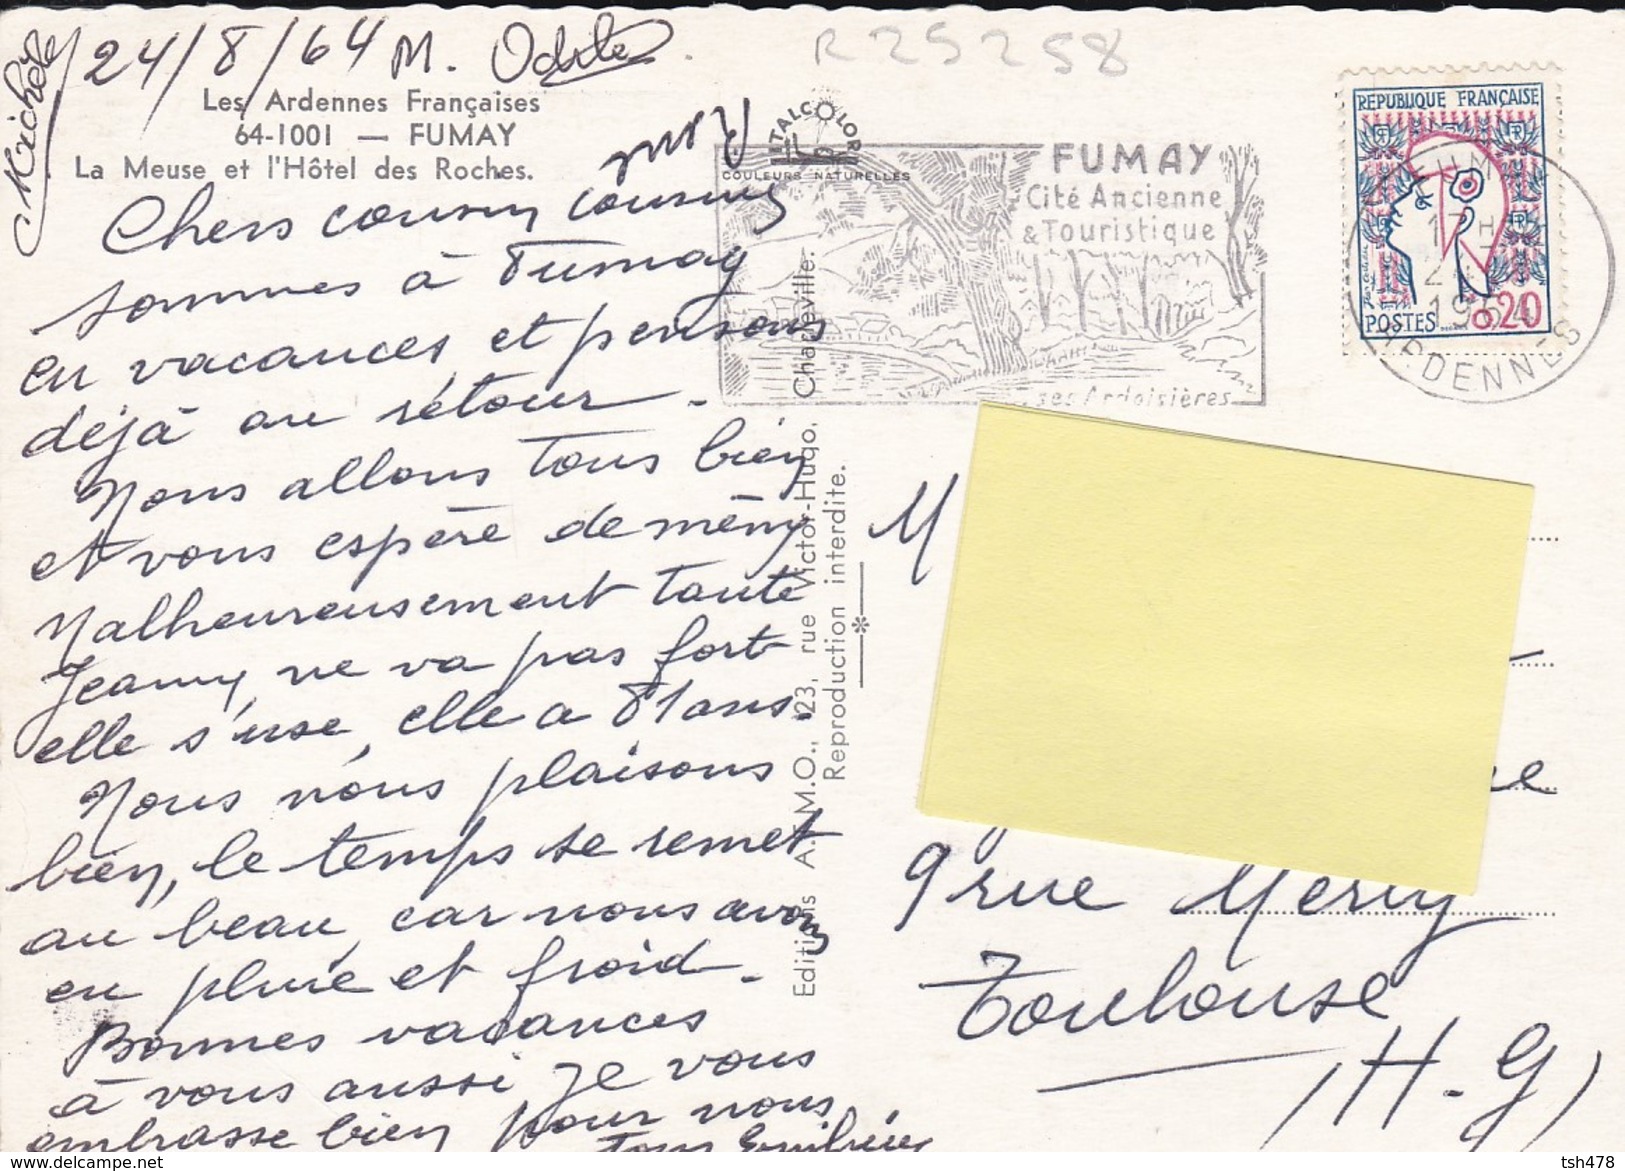 R25258
24/8/64 M. Odile
Michèle
Les Ardennes Françaises
64-1001 — FUMAY
La Meuse et l'Hôtel des Roches.
ITALCOLOR
COULEURS NATURELLES
FUMAY
Cité Ancienne
& Touristique
ses Ardoisières
REPUBLIQUE FRANÇAISE
POSTES 0.20
17 H
ARDENNES
Chers cousin cousine
sommes à Fumay
en vacances et pensons
déjà au retour.
Nous allons tous bien
et vous espère de même
Malheureusement tante
Jeanne, ne va pas fort
elle s'use, elle a 81 ans.
Nous nous plaisons
bien, le temps se remet
au beau, car nous avons
eu pluie et froid.
Bonnes vacances
à vous aussi je vous
embrasse bien pour nous
tous
Editions A.M.O., 23, rue Victor-Hugo, Charleville.
Reproduction interdite.
M
9 rue Merly
Toulouse
(H-G)
tsh478